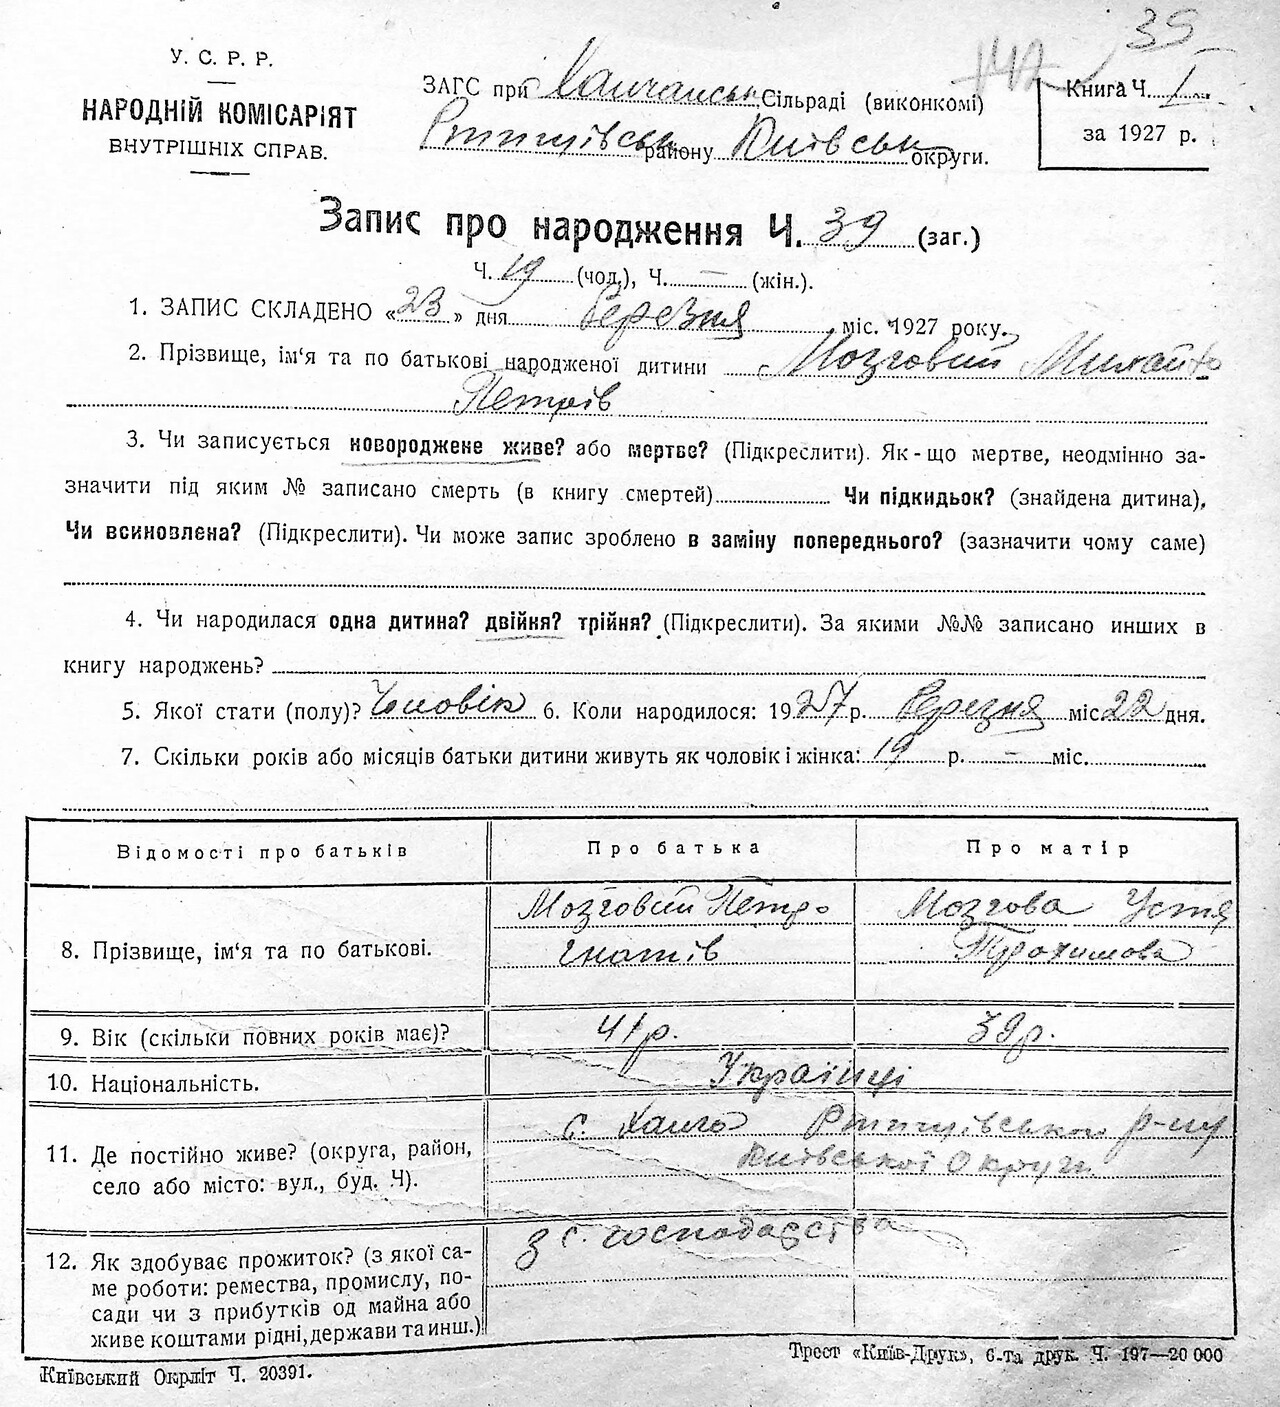 35
142
У. С. Р. Р.
НАРОДНІЙ КОМІСАРІЯТ
ВНУТРІШНІХ СПРАВ.
ЗАГС при Ханчанськ. Сільраді (виконкомі)
Ртищівськ району Київськ округи.
Книга Ч. I
за 1927 р.
Запис про народження Ч. 39 (заг.)
Ч. 19 (чод.), Ч. — (жін.).
1. ЗАПИС СКЛАДЕНО «23» дня березня міс. 1927 року.
2. Прізвище, ім‘я та по батькові народженої дитини Мозговий Михайло
Петрів
3. Чи записується новороджене живе? або мертве? (Підкреслити). Як-що мертве, неодмінно за-
значити під яким № записано смерть (в книгу смертей) Чи підкидьок? (знайдена дитина),
Чи всиновлена? (Підкреслити). Чи може запис зроблено в заміну попереднього? (зазначити чому саме)
4. Чи народилася одна дитина? двійня? трійня? (Підкреслити). За якими №№ записано инших в
книгу народжень?
5. Якої стати (полу)? Чоловік 6. Коли народилося: 1927 р. березня міс 22 дня.
7. Скільки років або місяців батьки дитини живуть як чоловік і жінка: 19 р. — міс.
Відомості про батьків Про батька Про матір
8. Прізвище, ім‘я та по батькові. Мозговий Петро Гнатів Мозгова Устя Трохимова
9. Вік (скільки повних років має)? 41 р. 39 р.
10. Національність. Українці
11. Де постійно живе? (округа, район,
село або місто: вул., буд. Ч).
с. Ртищівського р-ну
Київської округи
12. Як здобуває прожиток? (з якої са-
ме роботи: ремества, промислу, по-
сади чи з прибутків од майна або
живе коштами рідні, держави та инш.)
З с. господарства
Київський Окрліт Ч. 20391.
Трест «Київ-Друк», 6-та друк. Ч. 197—20 000